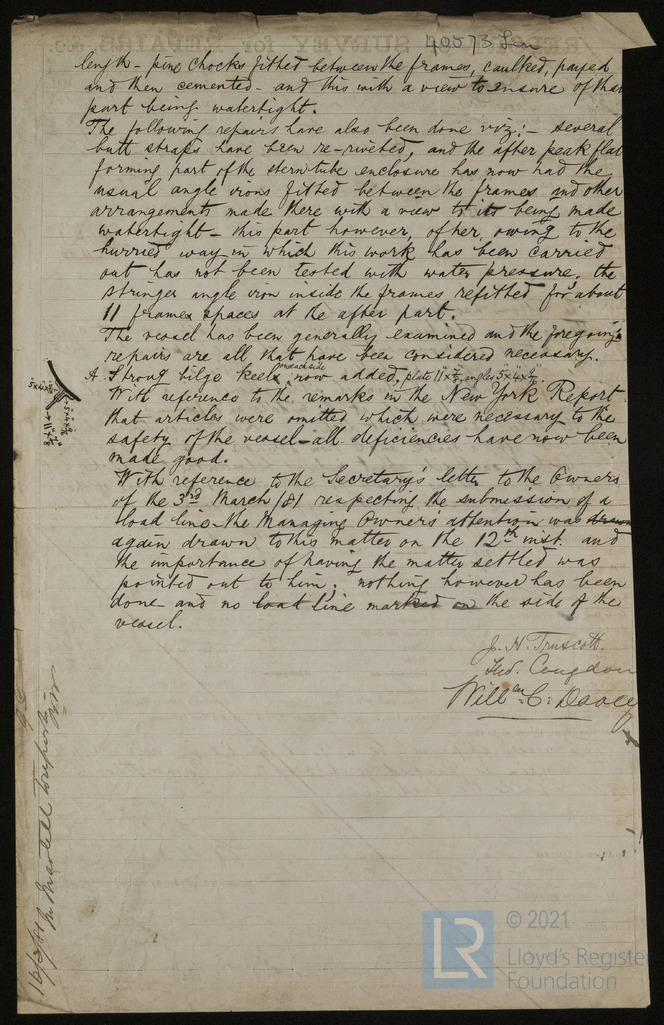 40573 Lon
length - pine chocks fitted between the frames, caulked, payed
and then cemented - and this with a view to ensure of that
part being watertight.
The following repairs have also been done viz:- several
butt straps have been re-riveted, and the after peak flat
forming part of the stern tube enclosure has now had the
usual angle irons fitted between the frames and other
arrangements made there with a view to its being made
watertight - this part however, of her, owing to the
hurried way in which this work has been carried
out has not been tested with water pressure, the
stringer angle iron inside the frames refitted for about
11 frames spaces at the after part.
The vessel has been generally examined and the foregoing
repairs are all that have been considered necessary.
A Strong bilge keels on each side now added, plate 11" x angles 5"x4"x
With reference to the remarks in the New York Report
that articles were omitted which were necessary to the
safety of the vessel - all deficiencies have now been
made good.
With reference to the Secretary's letter to the Owners
of the 3rd March /81 respecting the submission of a
load line - the Managing Owners attention was drawn
again drawn to this matter on the 12th inst. and
the importance of having the matter settled was
pointed out to him; nothing however has been
done - and no load line marked on the side of the
vessel.
J. H. Truscott.
Thos. Congdon
Willm C. Davey
LR
© 2021
Lloyd's Register
Foundation